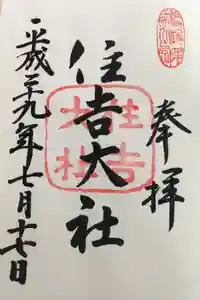 奉拝
住吉大社
住吉
大社
平成二九年七月十七日